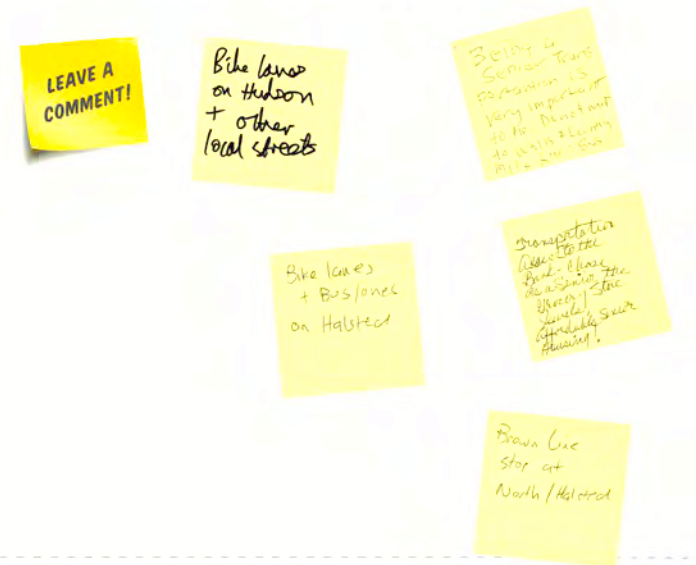 LEAVE A
COMMENT!
Bike lanes
on Hudson
+ other
local streets
Being a
Senior Trans
portation is
very important
to me. Do not want
to walk
Bike lanes
+ Bus lanes
on Halsted
Transportation
to the
Bank - Chase
as a Senior, the
Grocery Store
Jewels,
Affordable Senior
Housing!
Brown Line
stop at
North / Halsted